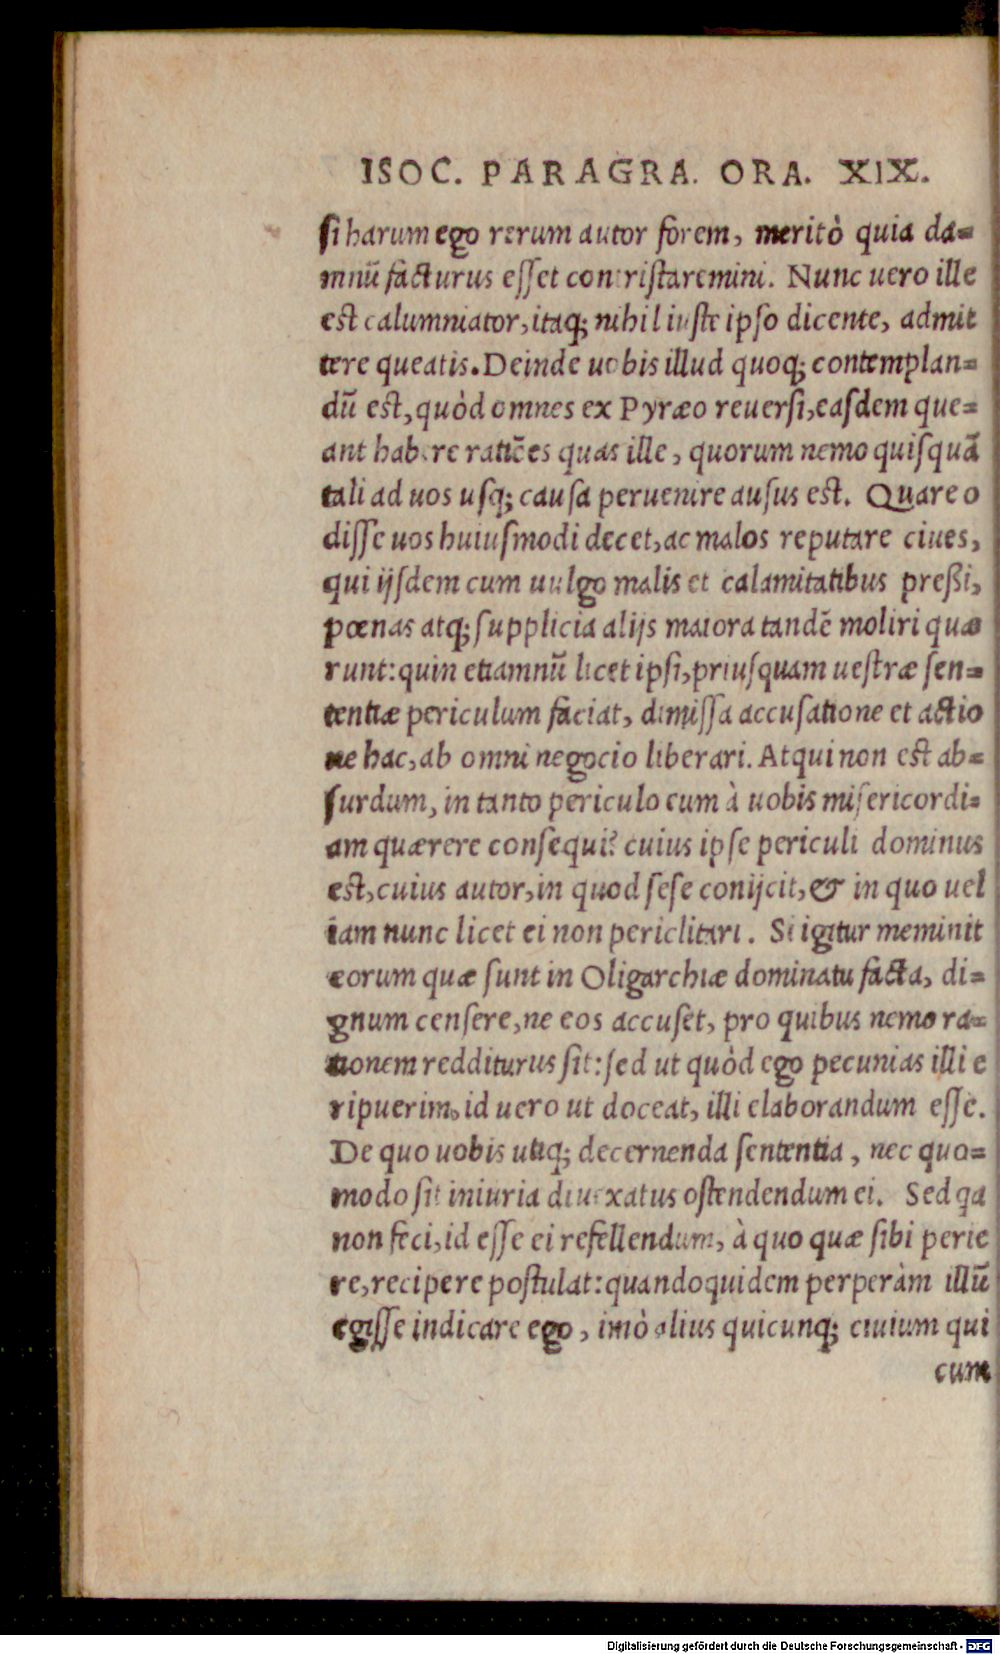 ISOC. PARAGRA. ORA. XIX.
si harum ego rerum autor forem, meritò quia da=
mnū facturus esset contristaremini. Nunc uero ille
est calumniator, itaq; nihil iuste ipso dicente, admit
tere queatis. Deinde uobis illud quoq; contemplan=
dū est, quòd omnes ex Pyræo reuersi, easdem que=
ant habere ratiōes quas ille, quorum nemo quisquā
tali ad uos usq; causa peruenire ausus est. Quare o
disse uos huiusmodi decet, ac malos reputare ciues,
qui ijsdem cum uulgo malis et calamitatibus preßi,
pœnas atq; supplicia alijs maiora tandē moliri quæ
runt: quin etiamnū licet ipsi, priusquam uestræ sen=
tentiæ periculum faciat, dimissa accusatione et actio
ne hac, ab omni negocio liberari. Atqui non est ab=
surdum, in tanto periculo cum à uobis misericordi=
am quærere consequi? cuius ipse periculi dominus
est, cuius autor, in quod sese conijcit, & in quo uel
iam nunc licet ei non periclitari. Si igitur meminit
eorum quæ sunt in Oligarchiæ dominatu facta, di=
gnum censere, ne eos accuset, pro quibus nemo ra=
tionem redditurus sit: sed ut quòd ego pecunias illi e
ripuerim, id uero ut doceat, illi elaborandum esse.
De quo uobis utiq; decernenda sententia, nec quo=
modo sit iniuria diuexatus ostendendum ei. Sed qa
non feci, id esse ei refellendum, à quo quæ sibi perie
re, recipere postulat: quandoquidem perperàm illū
egisse indicare ego, imò alius quicunq; ciuium qui
cum
Digitalisierung gefördert durch die Deutsche Forschungsgemeinschaft - DFG